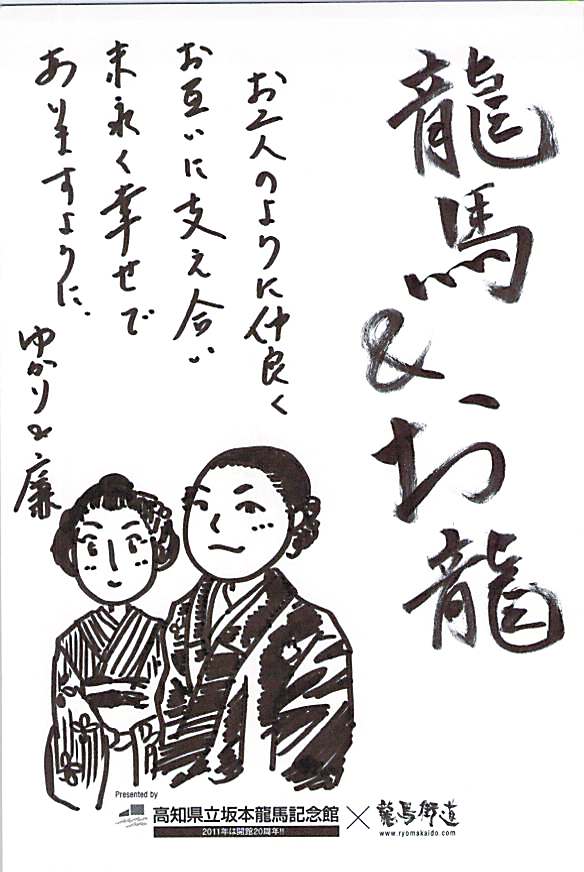 龍馬&お龍
お二人のように仲良く
お互いに支え合い
末永く幸せで
ありますように、
ゆかり&廉
Presented by
高知県立坂本龍馬記念館×龍馬街道
2011年は開館20周年!!
www.ryomakaido.com